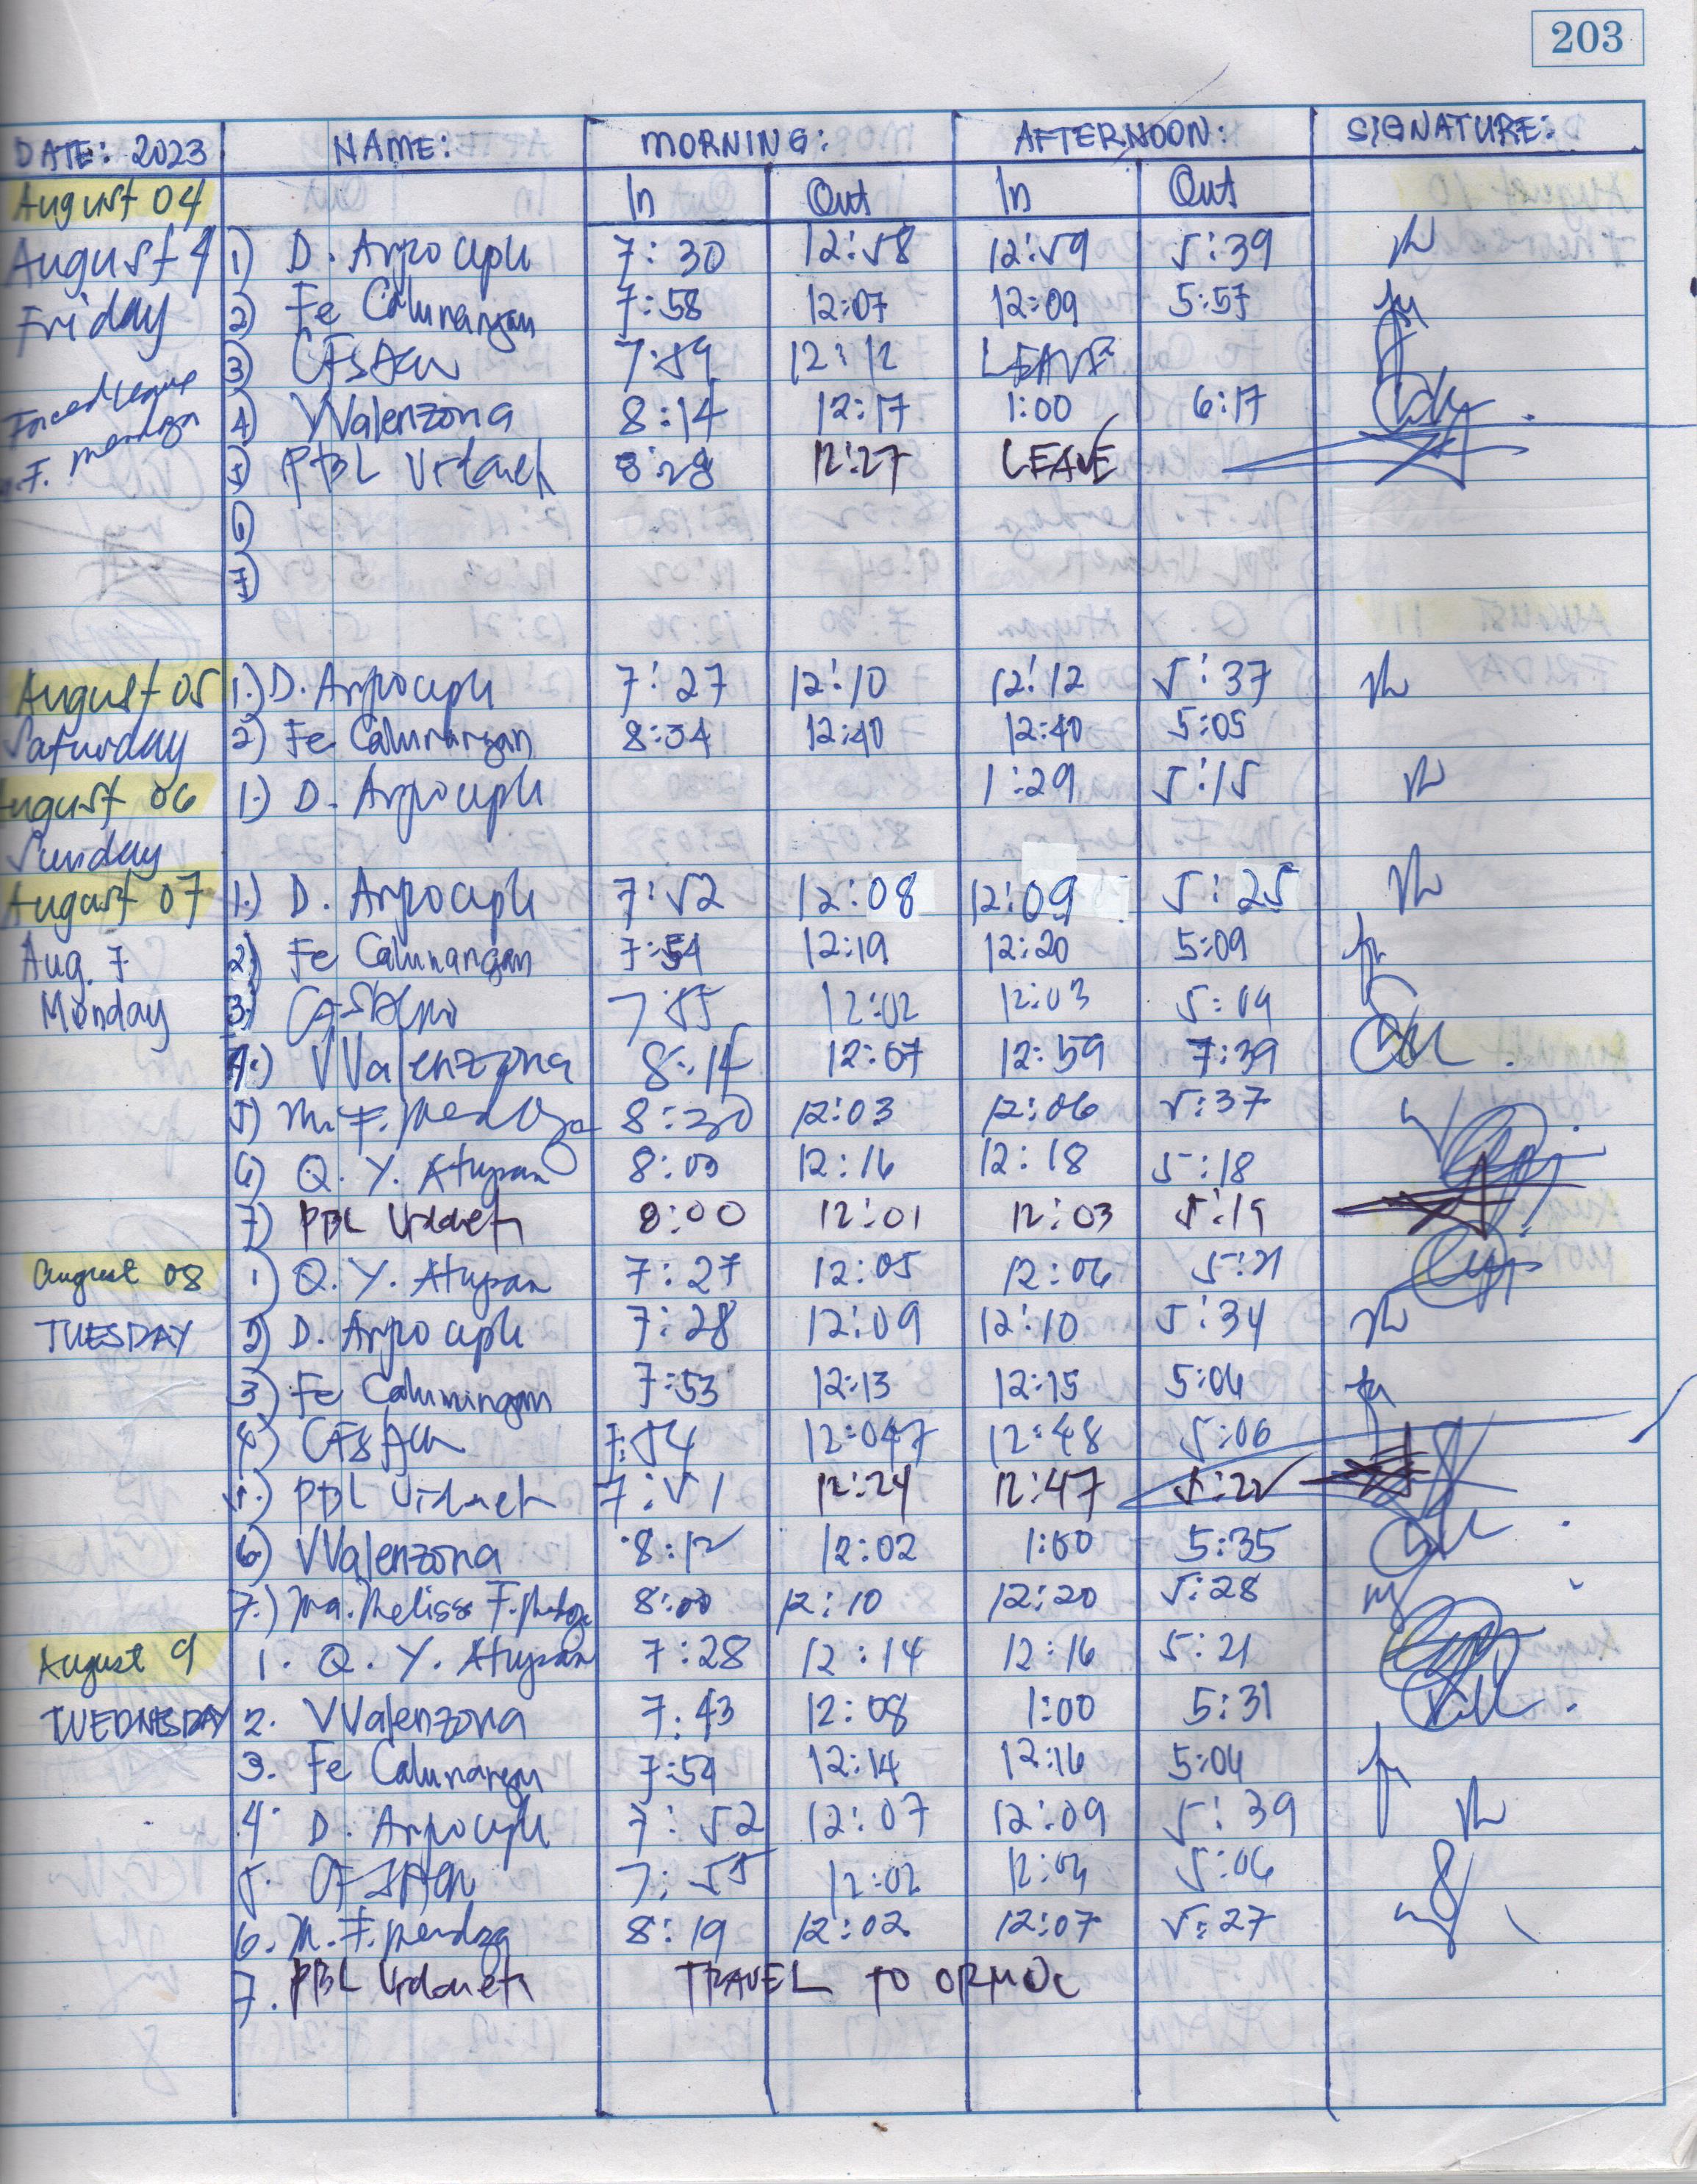 203
DATE: 2023 NAME: MORNING: AFTERNOON: SIGNATURE:
August 04 In Out In Out
August 4 1) D. 7:30 12:58 12:59 5:39
Friday 2) Fe Calunangan 7:58 12:07 12:09 5:57
3) 7:59 12:12 LEAVE
Forced leave 4) VValenzona 8:14 12:17 1:00 6:17
F. Mendoza 5) PBL 8:28 12:27 LEAVE
6)
7)
August 05 1.) D. 7:27 12:10 12:12 5:37
Saturday 2) Fe Calunangan 8:34 12:40 12:40 5:05
August 06 1.) D. 1:29 5:15
Sunday
August 07 1.) D. 7:52 12:08 12:09 5:25
Aug. 7 2) Fe Calunangan 7:54 12:19 12:20 5:09
Monday 3) 7:55 12:02 12:03 5:04
4.) VValenzona 8:14 12:07 12:59 7:39
5) M. F. Mendoza 8:30 12:03 12:06 5:37
6) Q. Y. Atupan 8:00 12:16 12:18 5:18
7) PBL 8:00 12:01 12:03 5:19
August 08 1) Q. Y. Atupan 7:27 12:05 12:06 5:21
TUESDAY 2) D. 7:28 12:09 12:10 5:34
3) Fe Calunangan 7:53 12:13 12:15 5:06
4) 7:54 12:047 12:48 5:06
5.) PBL 7:51 12:24 12:47 5:22
6) VValenzona 8:12 12:02 1:00 5:35
7.) Ma. Melissa F. Mendoza 8:00 12:10 12:20 5:28
August 9 1. Q. Y. Atupan 7:28 12:14 12:16 5:21
TUEDNESDAY 2. VValenzona 7:43 12:08 1:00 5:31
3. Fe Calunangan 7:54 12:14 12:16 5:06
4. D. 7:52 12:07 12:09 5:39
5. 7:55 12:02 12:04 5:06
6. M. F. Mendoza 8:19 12:02 12:07 5:27
7. PBL TRAVEL TO ORMOC